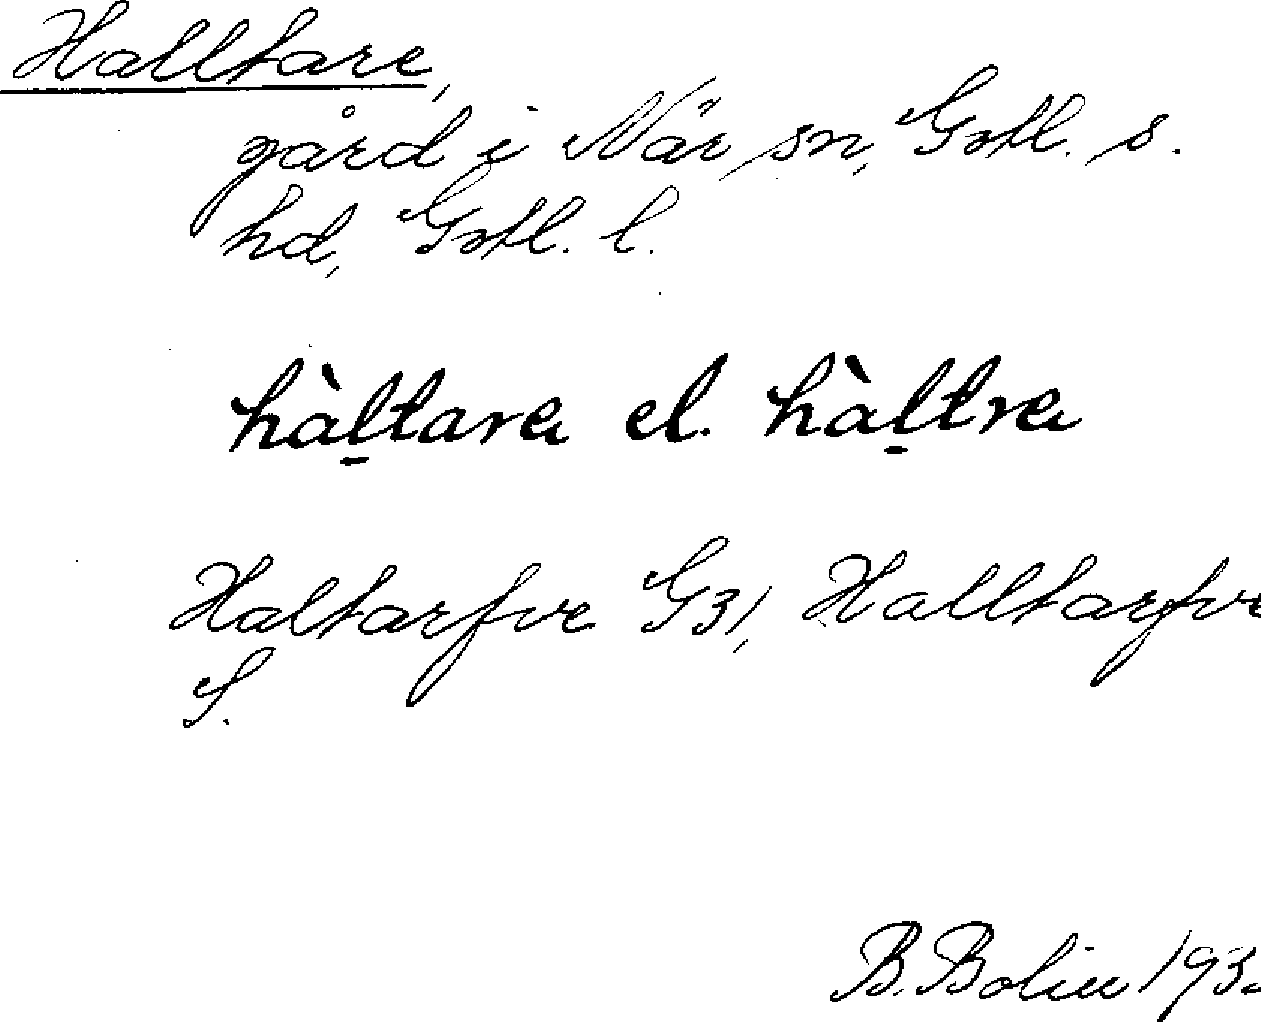 Halltare,
gård i När sn, Gotl. s.
hd, Gotl. l.
hàl̠tara el. hàl̠tra
Haltarfve G31, Halltarfve
S.
B. Bolin